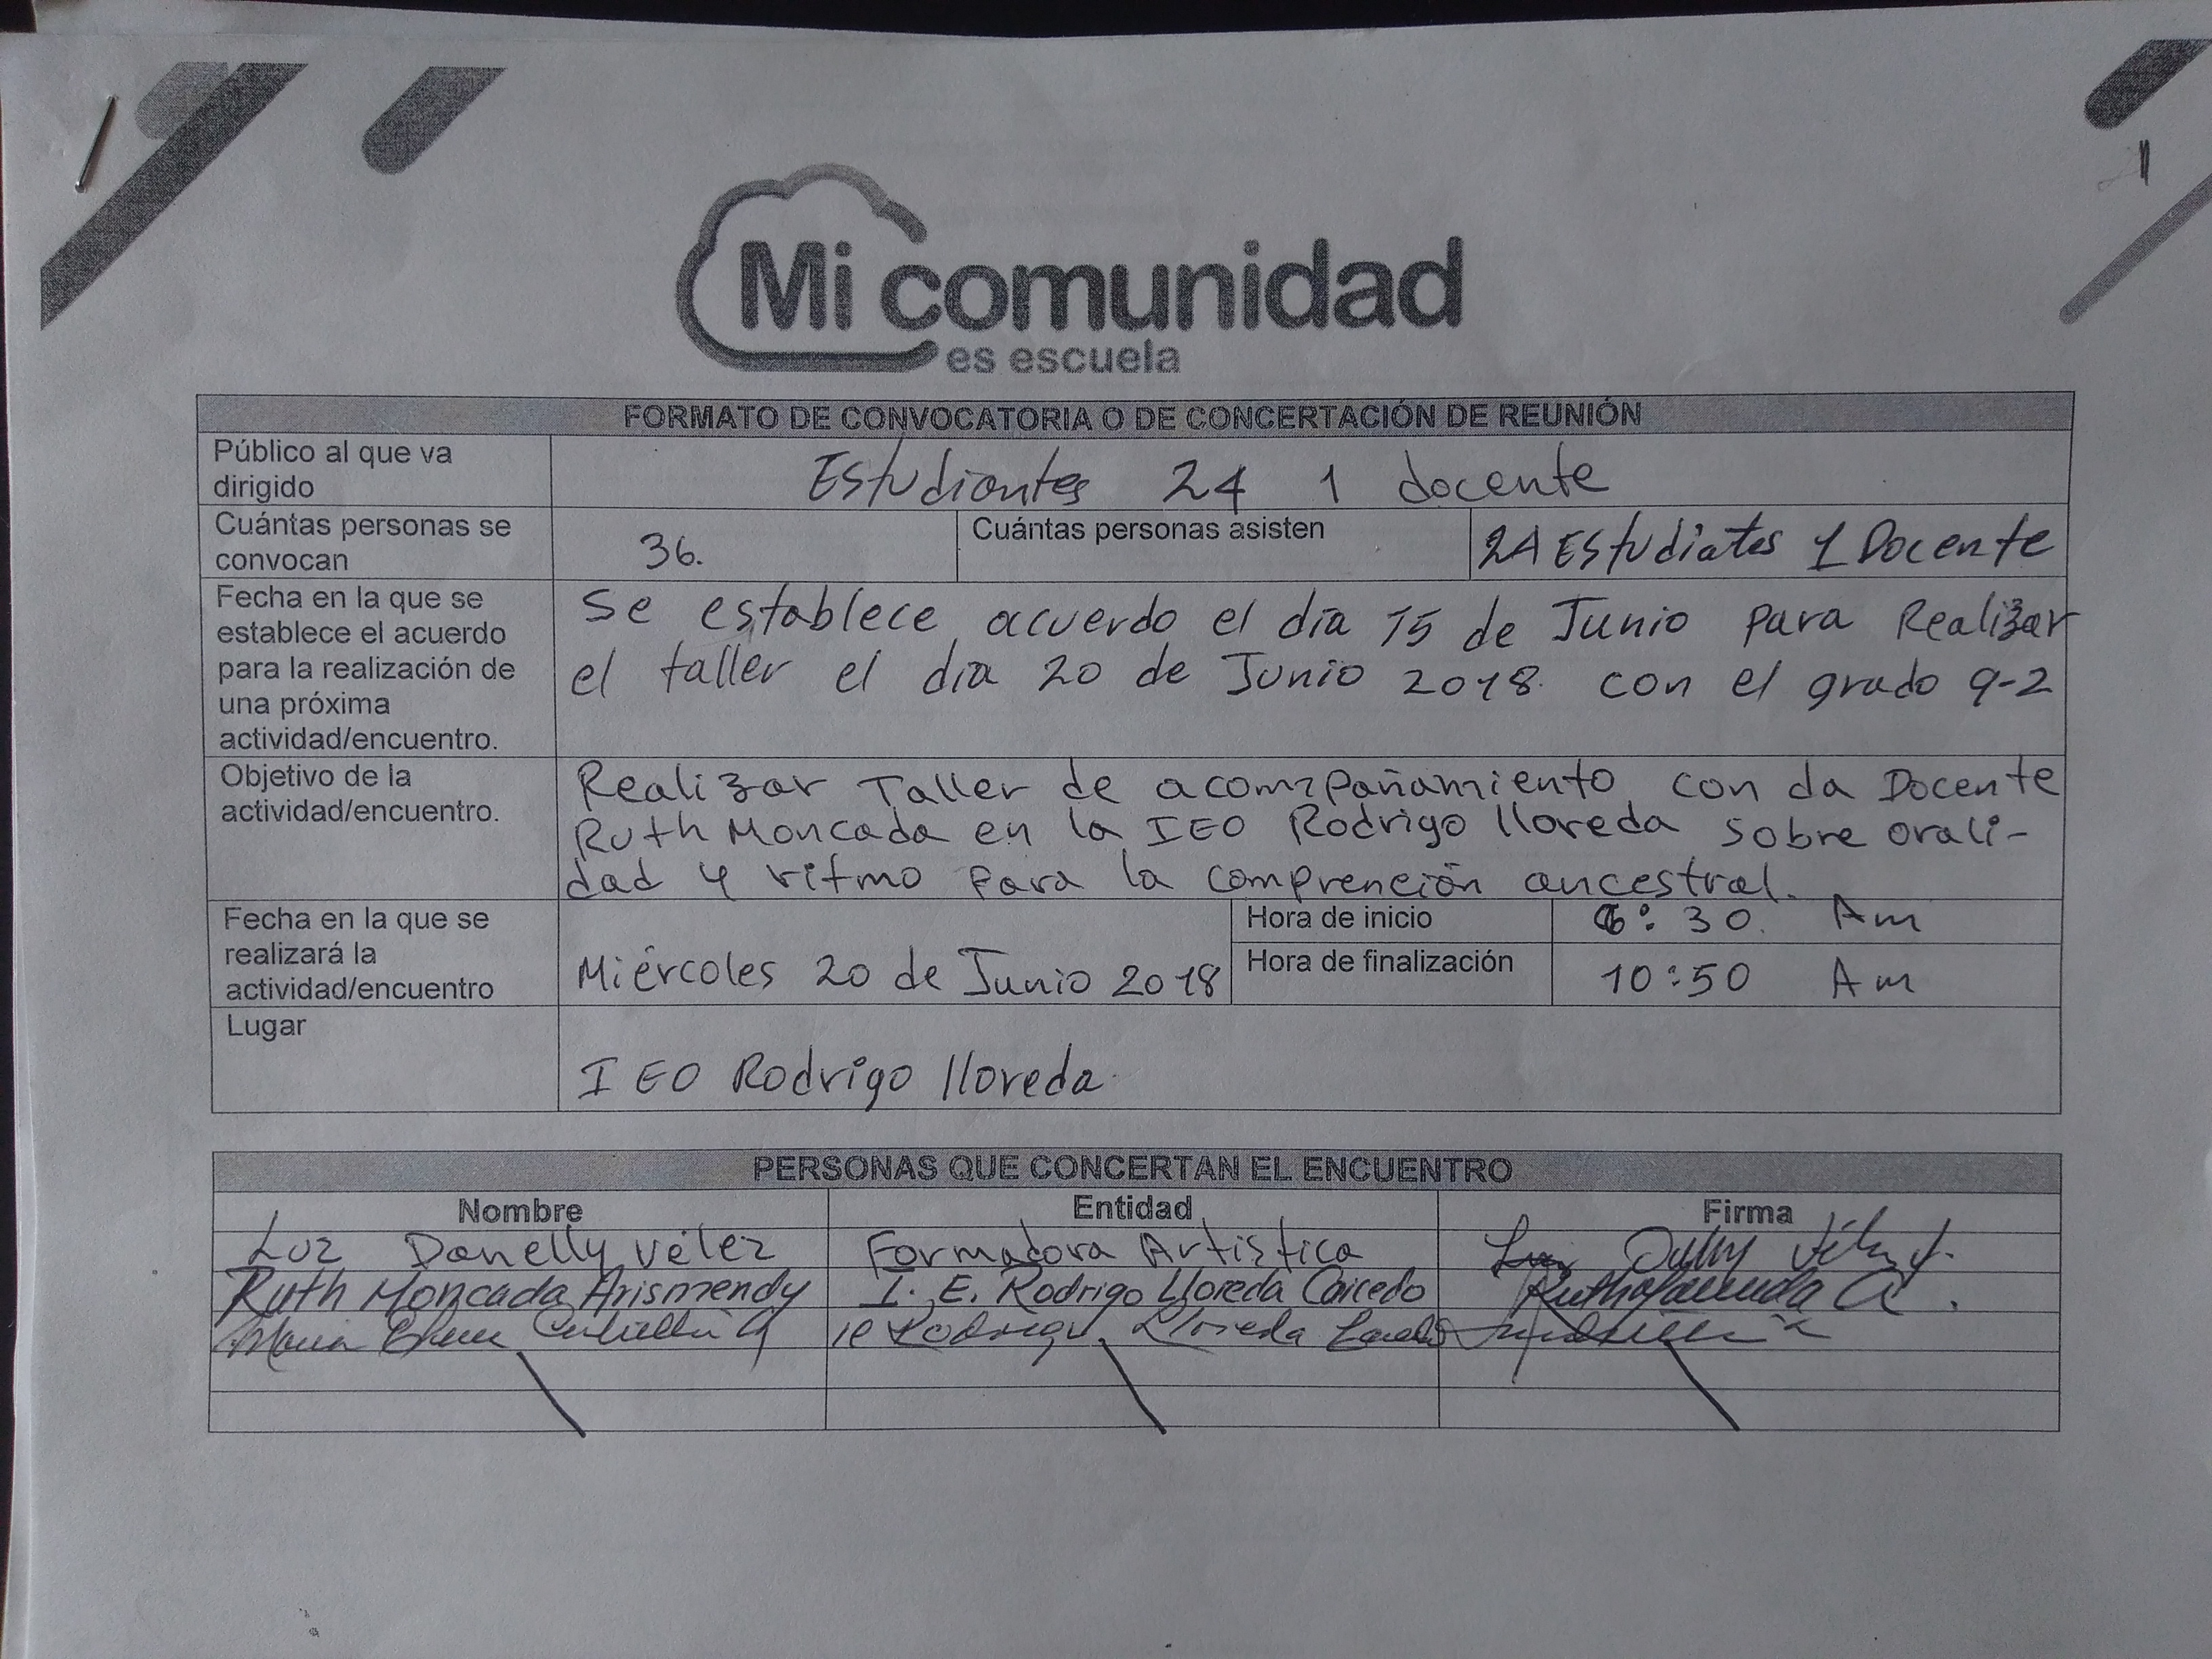 Mi comunidad
es escuela
FORMATO DE CONVOCATORIA O DE CONCERTACIÓN DE REUNIÓN
Público al que va
dirigido
Estudiantes 24 1 docente
Cuántas personas se
convocan
36.
Cuántas personas asisten
24 Estudiates 1 Docente
Fecha en la que se
establece el acuerdo
para la realización de
una próxima
actividad/encuentro.
Se establece acuerdo el día 15 de Junio para Realizar
el taller el dia 20 de Junio 2018. con el grado 9-2
Objetivo de la
actividad/encuentro.
Realizar Taller de acompañamiento con da Docente
Ruth Moncada en la IEO Rodrigo lloreda sobre orali-
dad y ritmo para la comprención ancestral.
Fecha en la que se
realizará la
actividad/encuentro
Miércoles 20 de Junio 2018
Hora de inicio
6:30. Am
Hora de finalización
10:50 Am
Lugar
IEO Rodrigo lloreda.
PERSONAS QUE CONCERTAN EL ENCUENTRO
Nombre Entidad Firma
Luz Danelly Vélez Formadora Artística
Ruth Moncada Arismendy I. E. Rodrigo Lloreda Caicedo
Maria IE Rodrigo Lloreda